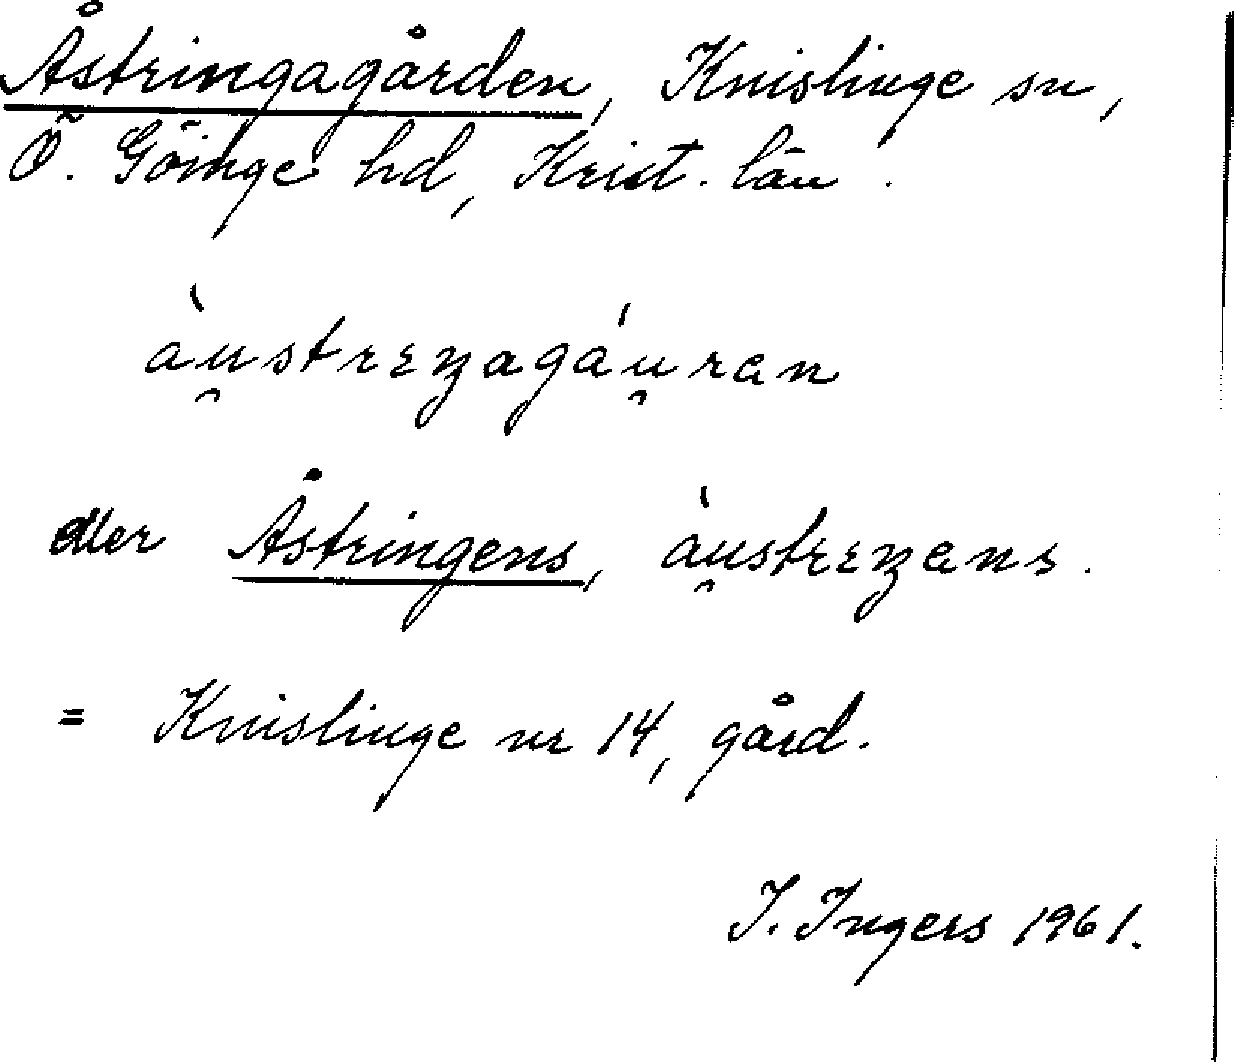 Åstringagården, Knislinge sn,
Ö. Göinge hd, Krist. län.
àu̯strɛŋagáu̯ran
eller Åstringens, àu̯strɛŋens.
= Knislinge nr 14, gård.
I. Ingers 1961.